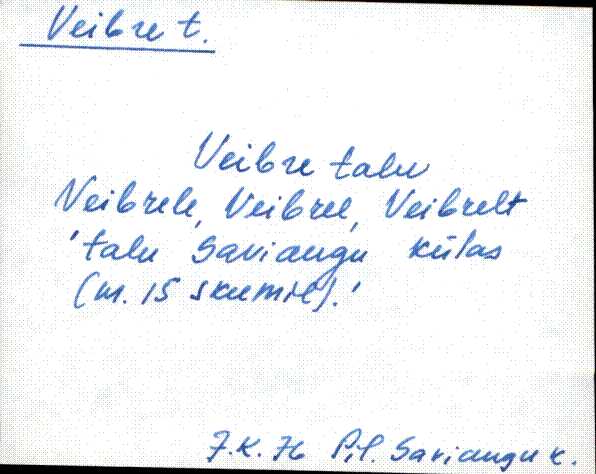 Veibre t.
Veibre talu
Veibrele, Veibrel, Veibrelt
'talu Saviaugu külas
(m. 15 skeemil).'
J.K. 76 Pil. Saviaugu k.